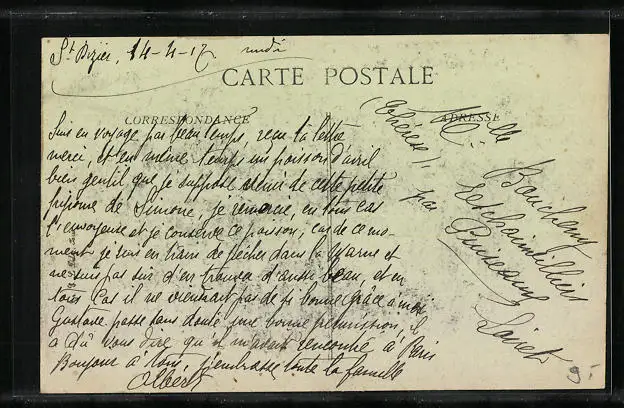 St Dizier, 14-4-17 midi
CARTE POSTALE
CORRESPONDANCE
ADRESSE
Suis en voyage par beau temps, reçu ta lettre
merci, et en même temps un poisson d'avril
bien gentil que je suppose venir de cette petite
friponne de Simone, je remercie, en tous cas
l'envoyeuse et je conserve ce poisson, car de ce mo-
ment je suis en train de pêcher dans la Marne et
ne suis pas sûr d'en trouver d'aussi beau, et en
tous cas il ne viendrait pas de si bonne grâce à moi
Gustave passe sans doute une bonne permission, il
a dû vous dire qu'il m'avait rencontré à Paris
Bonjour à tous, j'embrasse toute la famille
Albert
Melle
(Thérèse)
par
Puiseaux
Loiret